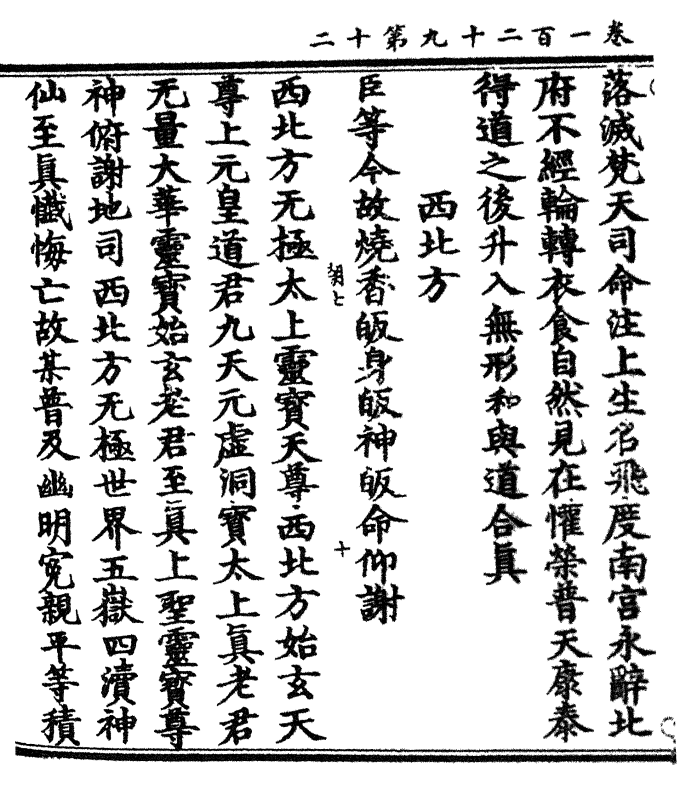 卷一百二十九第十二
落滅梵天司命注上生名飛度南宮永辭北
府不經輪轉衣食自然見在懽榮普天康泰
得道之後升入無形和與道合眞
西北方
臣等今故燒香皈身皈神皈命仰謝
西北方无極太上靈寶天尊西北方始玄天
尊上元皇道君九天元虛洞寶太上眞老君
无量大華靈寶始玄老君至眞上聖靈寶尊
神俯謝地司西北方无極世界五嶽四瀆神
仙至眞懺悔亡故某普及幽明寃親平等積
胡七
十